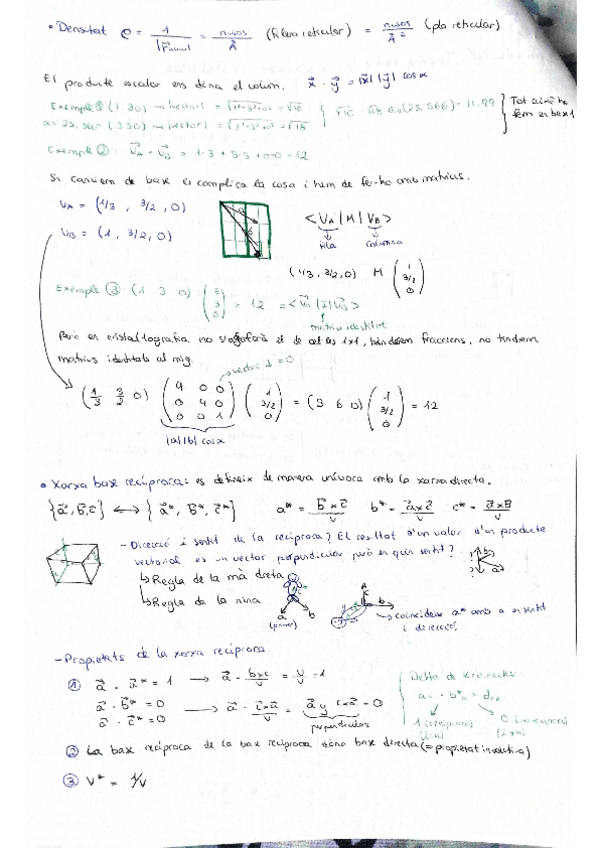 • Densitat ρ = 1 / |r⃗ nusul| = nusos / Å (fila reticular) = nusos / Å² (pla reticular)
El producte escalar ens dona el volum. x⃗ · y⃗ = |x⃗| |y⃗| cos α
Exemple ① (1 3 0) → |vector| = √(1²+3²+0²) = √10
α = 25, (3 3 0) → |vector| = √(3²+3²+0²) = √18
√10 · √18 cos(25,566) = 11,99
Tot això ho fem en base 1
Exemple ②: v⃗A · v⃗B = 1·3 + 3·3 + 0·0 = 12
Si canviem de base es complica la cosa i hem de fer-ho amb matrius.
vA = (1/3, 3/2, 0)
vB = (1, 3/2, 0)
< vA | M | vB >
fila columna
(1/3, 3/2, 0) M (1 3/2 0)
Exemple ③: (1 3 0) (3 3 0) = 12 = < v⃗A | I | v⃗B >
matriu identitat
Però en cristal·lografia no s'agafarà el de cel·les 1x1, tindrem fraccions, no tindrem
matrius identitats al mig.
vector = 0
(1/3 3/2 0) (9 0 0 / 0 4 0 / 0 0 1) (1 3/2 0) = (3 6 0) (1 3/2 0) = 12
|a||b| cos α
• Xarxa base recíproca: es defineix de manera unívoca amb la xarxa directa.
{a⃗, b⃗, c⃗} ⟷ {a⃗*, b⃗*, c⃗*} a* = b⃗ x c⃗ / V b* = a⃗ x c⃗ / V c* = a⃗ x b⃗ / V
- Direcció i sentit de la recíproca? El resultat d'un valor d'un producte
vectorial es un vector perpendicular però en quin sentit?
↳ Regla de la mà dreta
↳ Regla de la nina
a b
(primer)
→ coincideix a* amb a en sentit
i direcció
- Propietats de la xarxa recíproca
① a⃗ · a⃗* = 1 → a⃗ · b x c / V = V / V = 1
a⃗ · b⃗* = 0
a⃗ · c⃗* = 0 → a⃗ · c⃗ x a⃗ / V = a⃗ y c x a = 0
perpendiculars
Delta de Kronecker:
1 (recíproca) 0
② La base recíproca de la base recíproca dona base directa (= propietat involutiva)
③ V* = 1/V